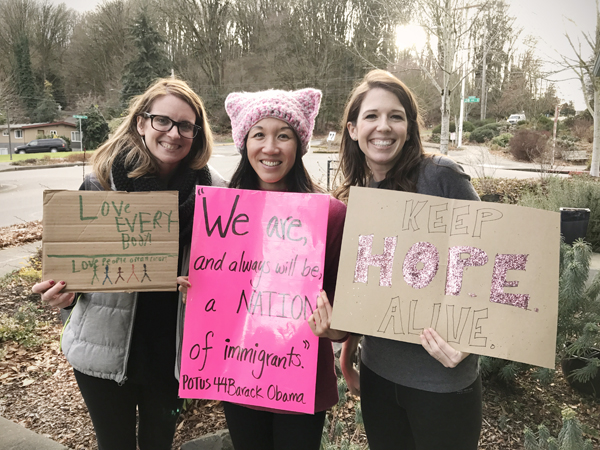 Love EVERY
BODY
"We are,
and always will be,
a NATION
of immigrants."
POTUS 44 Barack Obama
KEEP
H.O.P.E.
ALIVE.